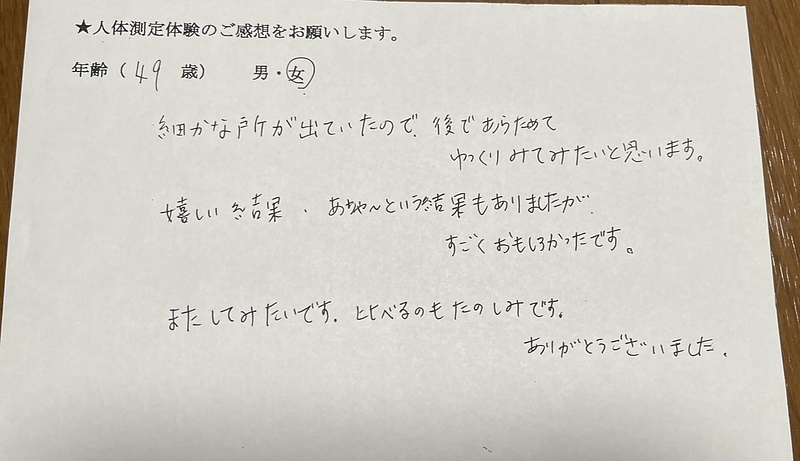 ★人体測定体験のご感想をお願いします。
年齢（49 歳） 男・女
細かな所が出ていたので、後であらためて
ゆっくりみてみたいと思います。
嬉しい結果、あちゃ〜という結果もありましたが、
すごくおもしろかったです。
またしてみたいです。比べるのもたのしみです。
ありがとうございました。